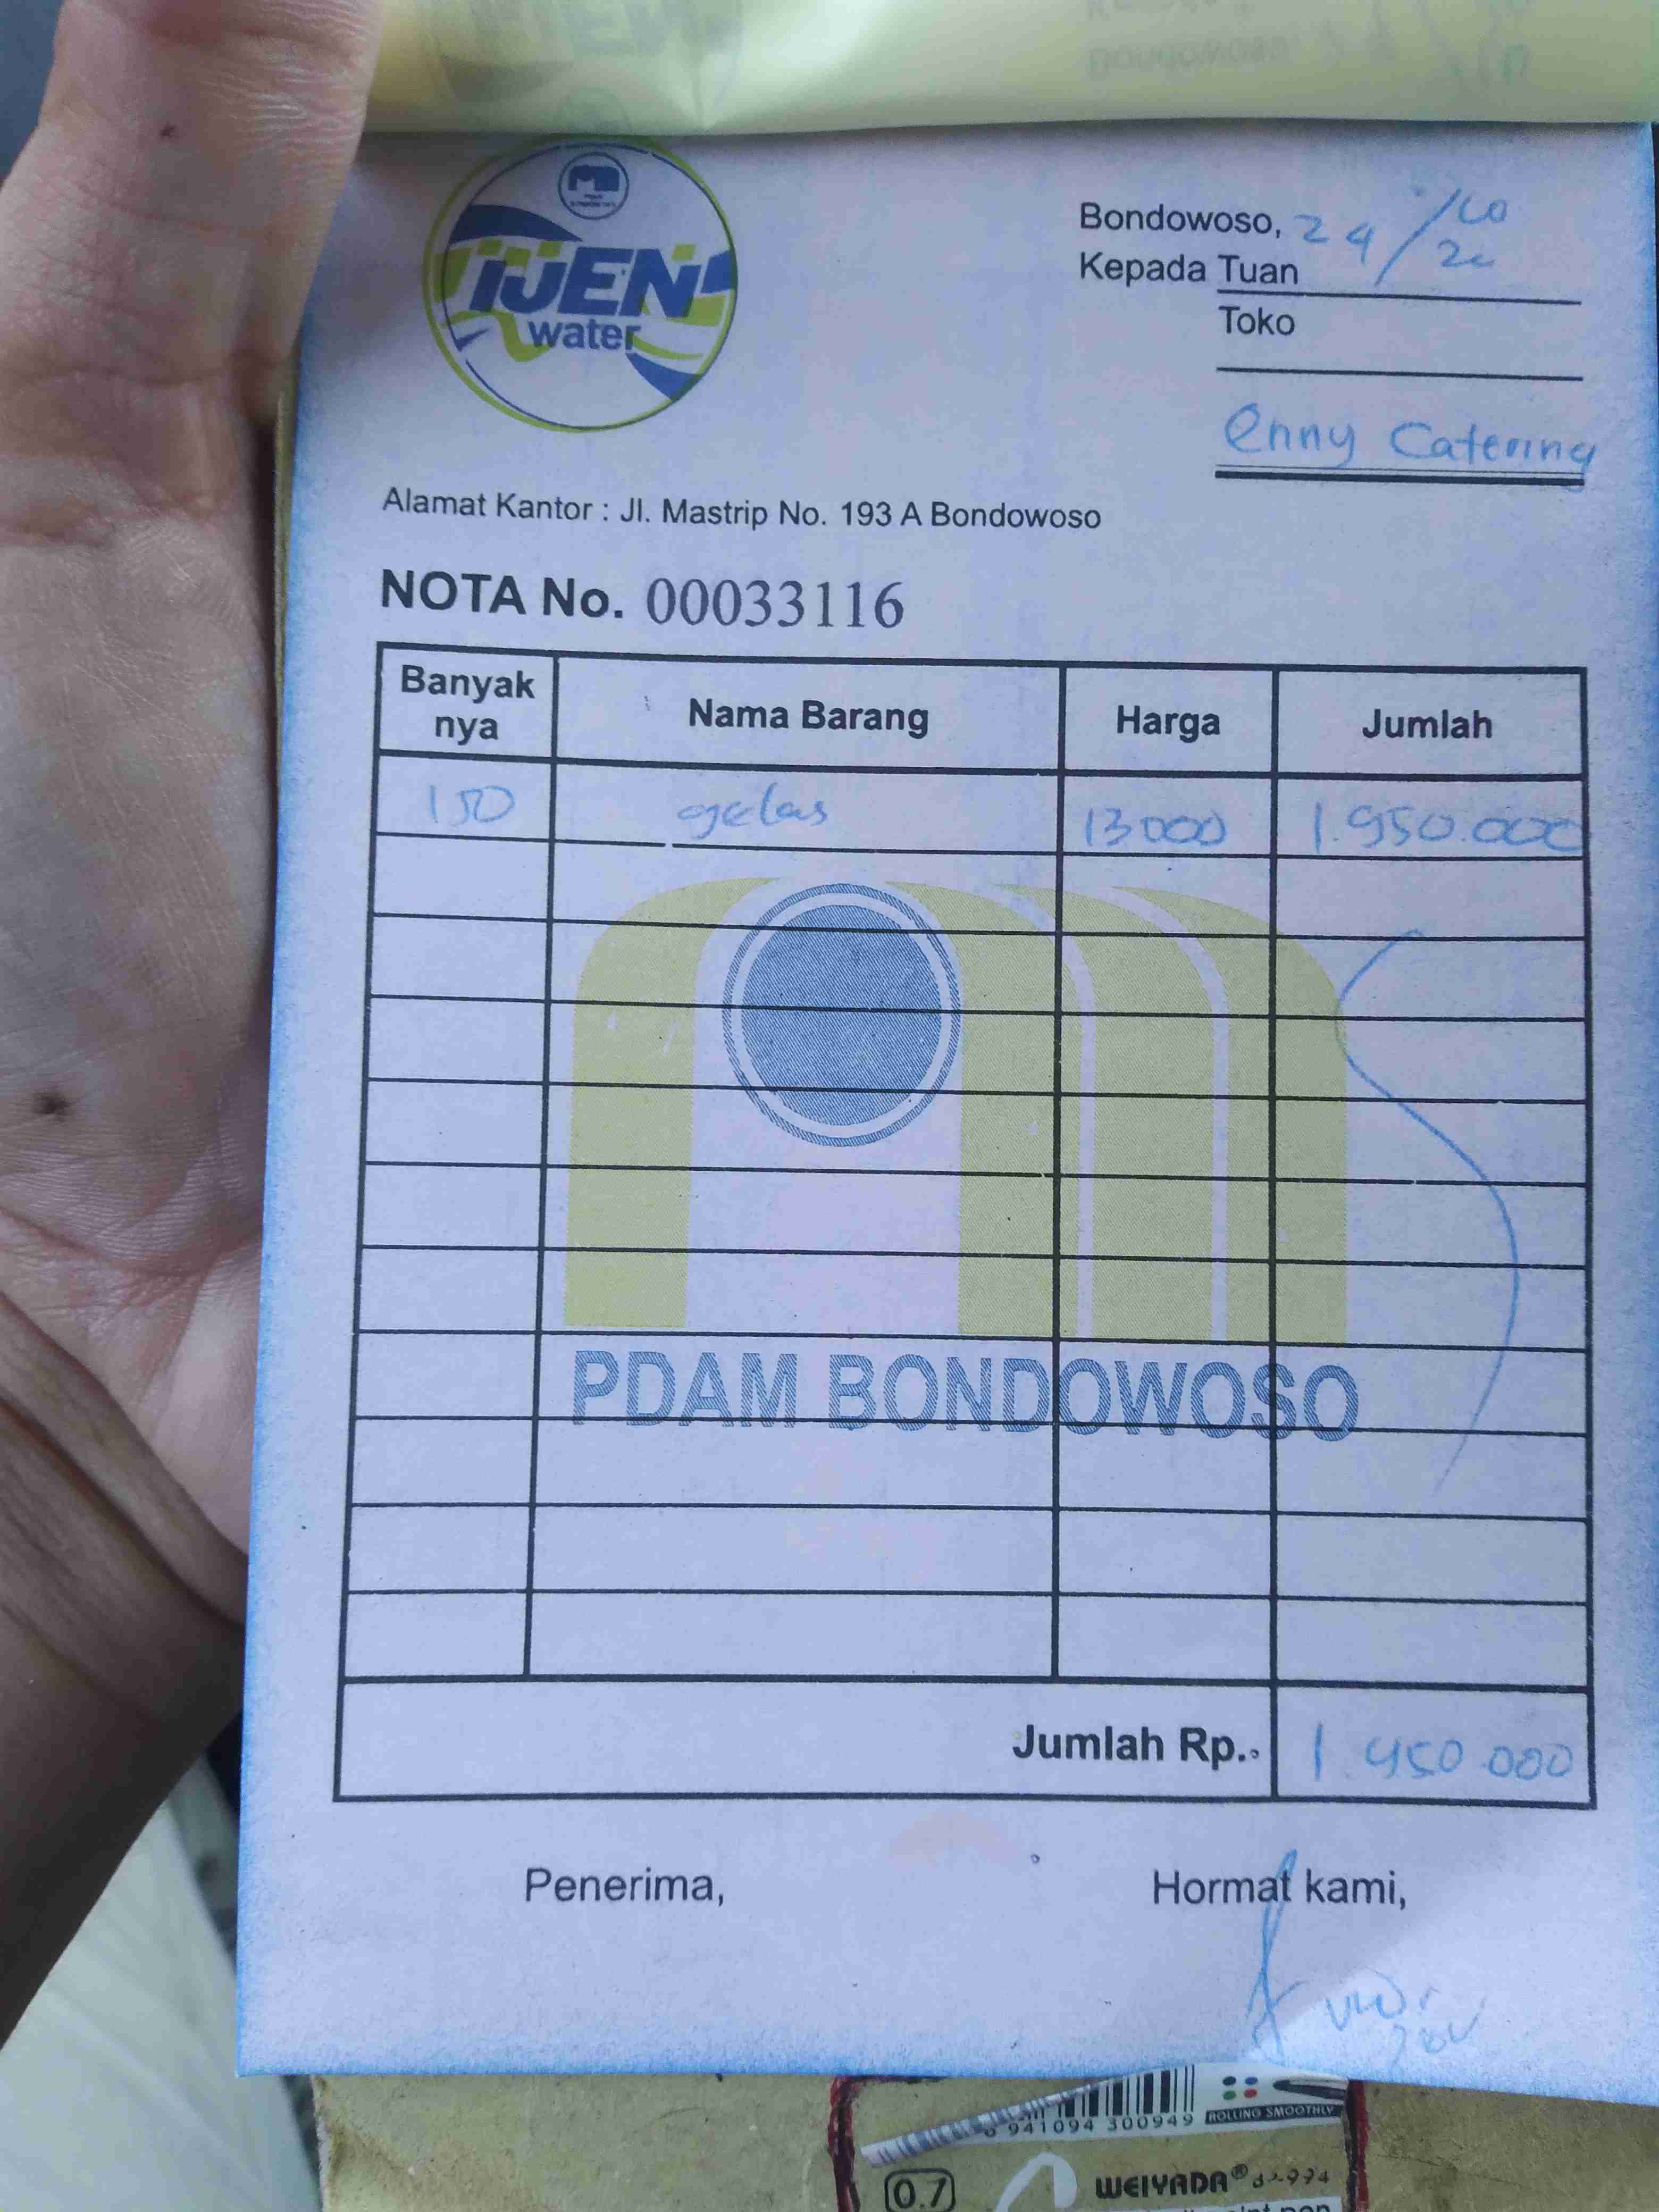 IJEN
water
Bondowoso, 24/10
Kepada Tuan
Toko
Enny Catering
Alamat Kantor : Jl. Mastrip No. 193 A Bondowoso
NOTA No. 00033116
Banyak nya Nama Barang Harga Jumlah
150 gelas 13000 1.950.000
PDAM BONDOWOSO
Jumlah Rp. 1.950.000
Penerima, Hormat kami,
941094 300949
ROLLING SMOOTHLY
0.7 WEIYADA®